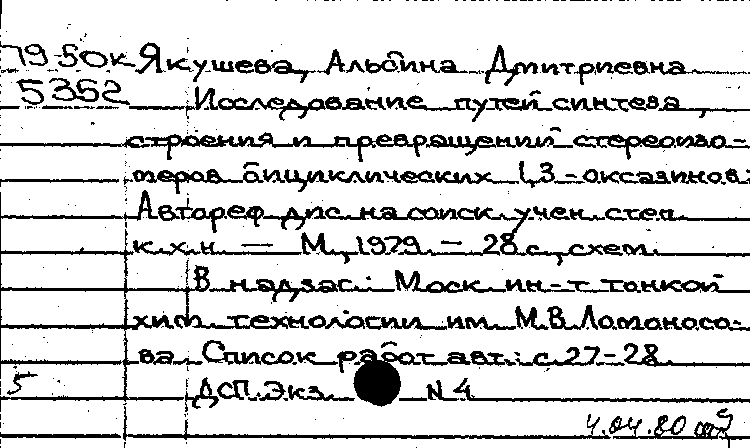 7950к Якушева, Альбина Дмитриевна
5352 Исследование путей синтеза,
строения и превращений стереоизо-
меров бициклических 1,3-оксазинов:
Автореф дис. на соиск. учен. степ.
к.х.н. — М., 1979. — 28 с., схем.
В надзаг.: Моск. ин-т тонкой
хим. технологии им. М.В. Ломоносо-
ва. Список работ авт.: с. 27-28.
5 ДСП. Экз. N 4
4.04.80